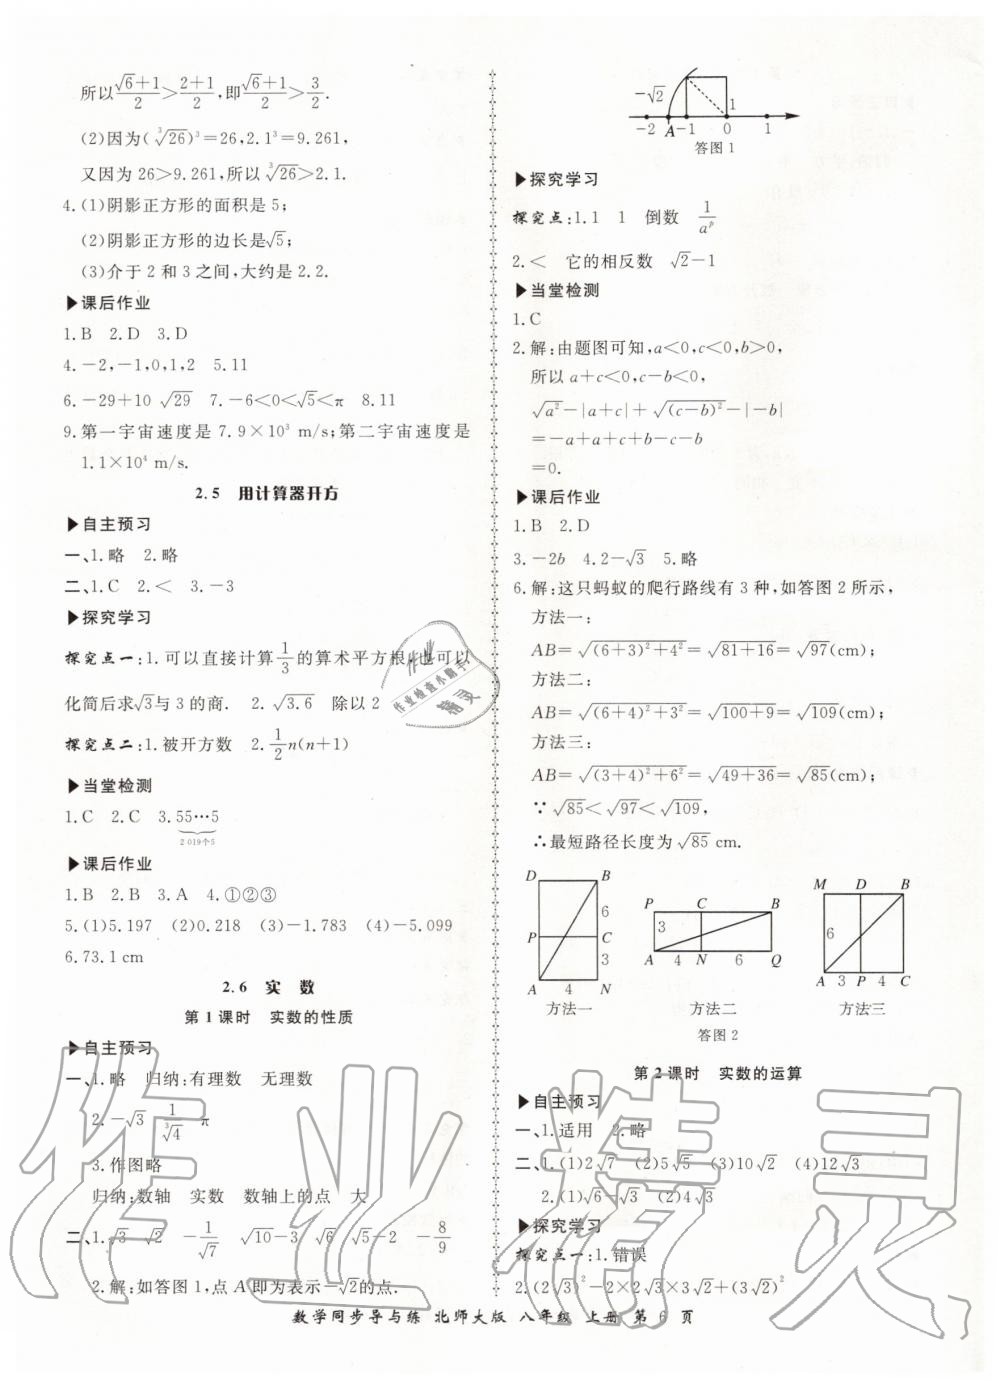 所以(√6+1)/2>(2+1)/2,即(√6+1)/2>3/2.
(2)因为(∛26)³=26,2.1³=9.261,
又因为 26>9.261,所以∛26>2.1.
4.(1)阴影正方形的面积是 5;
(2)阴影正方形的边长是√5;
(3)介于 2 和 3 之间,大约是 2.2.
▶课后作业
1.B 2.D 3.D
4.-2,-1,0,1,2 5.11
6.-29+10√29 7.-6<0<√5<π 8.11
9.第一宇宙速度是 7.9×10³ m/s;第二宇宙速度是
1.1×10⁴ m/s.
2.5 用计算器开方
▶自主预习
一、1.略 2.略
二、1.C 2.< 3.-3
▶探究学习
探究点一:1.可以直接计算1/3的算术平方根,也可以
化简后求√3与 3 的商. 2.√3.6 除以 2
探究点二:1.被开方数 2.1/2n(n+1)
▶当堂检测
1.C 2.C 3.55⋯5
2 019个5
▶课后作业
1.B 2.B 3.A 4.①②③
5.(1)5.197 (2)0.218 (3)-1.783 (4)-5.099
6.73.1 cm
2.6 实 数
第 1 课时 实数的性质
▶自主预习
一、1.略 归纳:有理数 无理数
2.-√3 1/∛4 π
3.作图略
归纳:数轴 实数 数轴上的点 大
二、1.√3 √2 -1/√7 √10-3 √6 √5-2 -8/9
2.解:如答图 1,点 A 即为表示-√2的点.
-√2 1
-2 A -1 0 1
答图 1
▶探究学习
探究点:1.1 1 倒数 1/aᵖ
2.< 它的相反数 √2-1
▶当堂检测
1.C
2.解:由题图可知,a<0,c<0,b>0,
所以 a+c<0,c-b<0,
√a²-|a+c|+√(c-b)²-|-b|
=-a+a+c+b-c-b
=0.
▶课后作业
1.B 2.D
3.-2b 4.2-√3 5.略
6.解:这只蚂蚁的爬行路线有 3 种,如答图 2 所示,
方法一:
AB=√(6+3)²+4²=√81+16=√97(cm);
方法二:
AB=√(6+4)²+3²=√100+9=√109(cm);
方法三:
AB=√(3+4)²+6²=√49+36=√85(cm);
∵√85<√97<√109,
∴最短路径长度为√85 cm.
D B
6
P C
3
A 4 N
方法一
P C B
3
A 4 N 6 Q
方法二
M D B
6
A 3 P 4 C
方法三
答图 2
第 2 课时 实数的运算
▶自主预习
一、1.适用 2.略
二、1.(1)2√7 (2)5√5 (3)10√2 (4)12√3
2.(1)√6-√3 (2)4√3
▶探究学习
探究点一:1.错误
2.(2√3)²-2×2√3×3√2+(3√2)²
数学同步导与练 北师大版 八年级 上册 第 6 页
作业精灵
作业
作业检查小助手
精灵